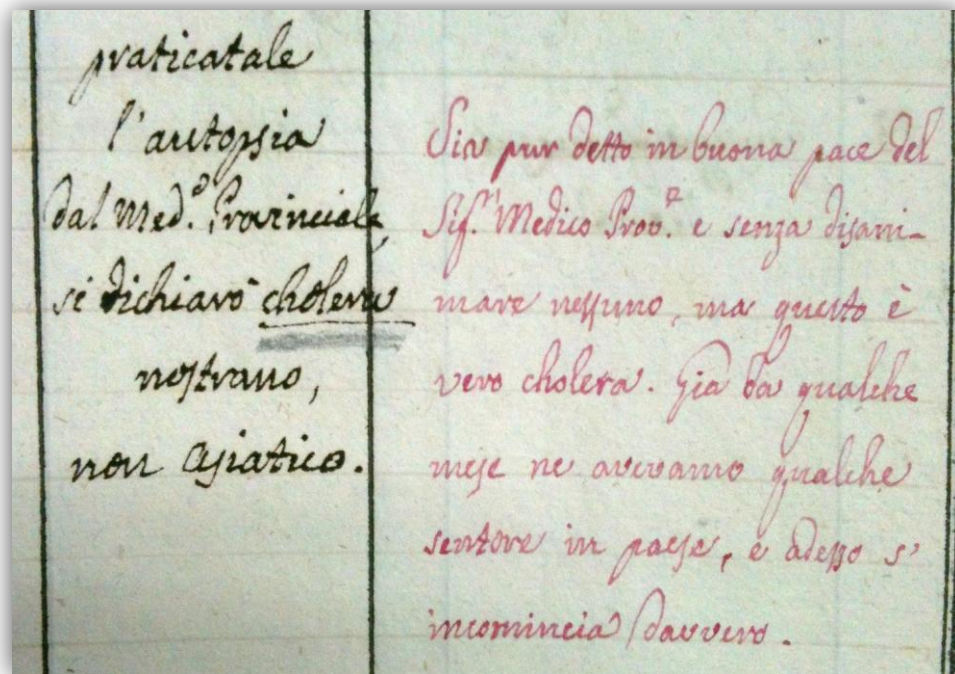 praticatale
l'autopsia
dal Med.º Provinciale,
si dichiarò cholera
nostrano,
non asiatico.
Sia pur detto in buona pace del
Sig.r Medico Prov.e e senza disani-
mare nessuno, ma questo è
vero cholera. Già da qualche
mese ne avevamo qualche
sentore in paese, e adesso s'
incomincia davvero.